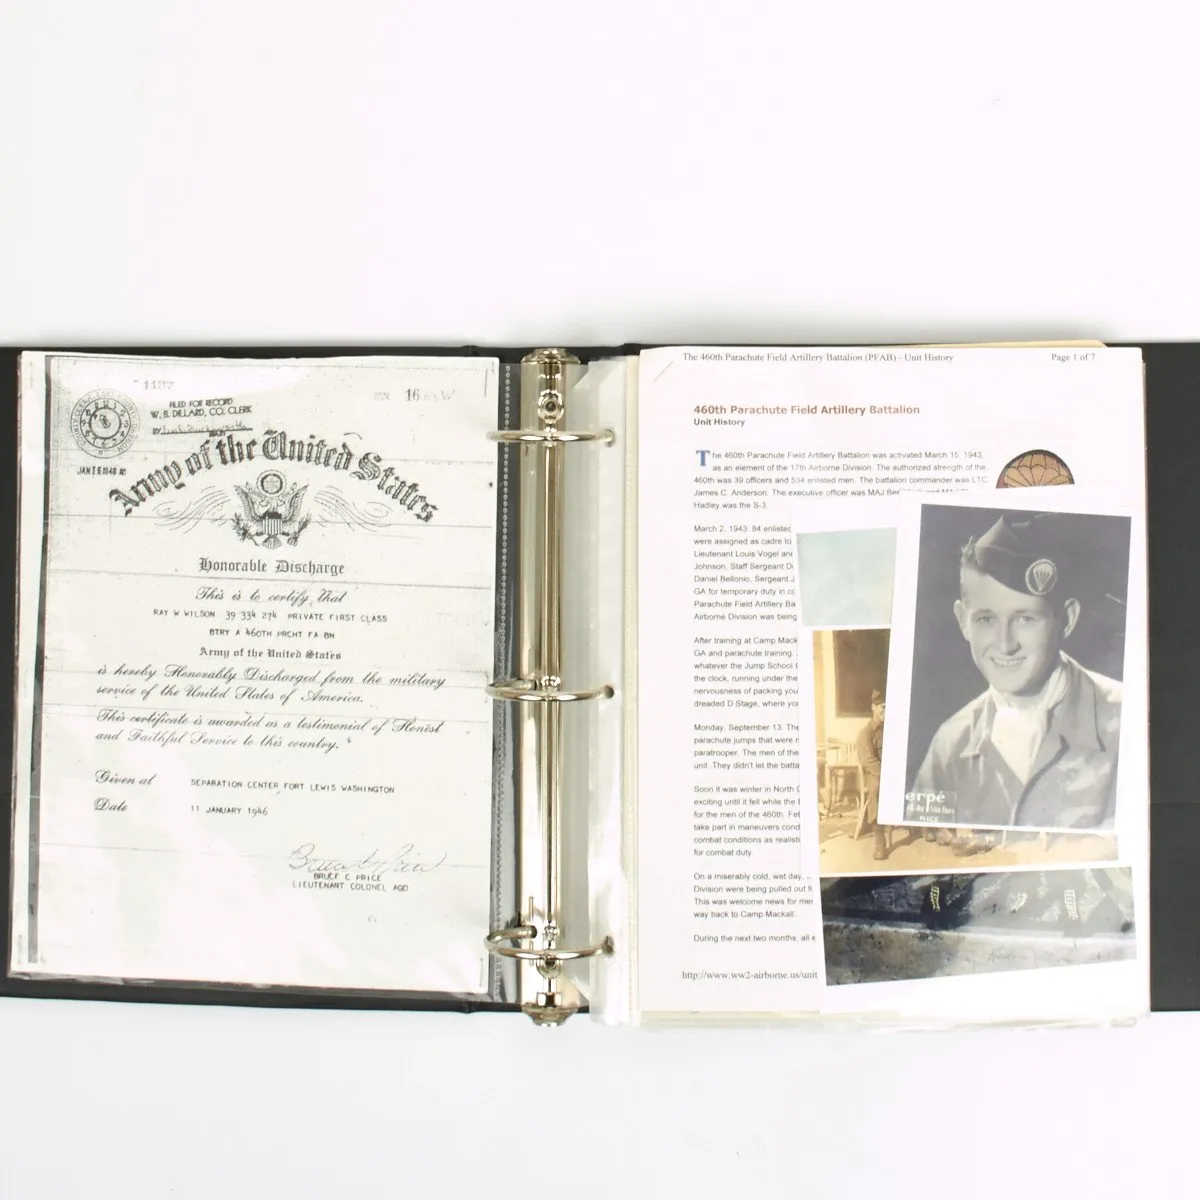 1197
FILED FOR RECORD
W. B. DILLARD, CO. CLERK
BY
JAN 16 1946
16
Army of the United States
Honorable Discharge
This is to certify that
RAY W WILSON 39 334 274 PRIVATE FIRST CLASS
BTRY A 460TH PRCHT FA BN
Army of the United States
is hereby Honorably Discharged from the military
service of the United States of America.
This certificate is awarded as a testimonial of Honest
and Faithful Service to this country.
Given at SEPARATION CENTER FORT LEWIS WASHINGTON
Date 11 JANUARY 1946
BRUCE C PRICE
LIEUTENANT COLONEL AGD
The 460th Parachute Field Artillery Battalion (PFAB) - Unit History Page 1 of 7
460th Parachute Field Artillery Battalion
Unit History
The 460th Parachute Field Artillery Battalion was activated March 15, 1943,
as an element of the 17th Airborne Division. The authorized strength of the
460th was 39 officers and 534 enlisted men. The battalion commander was LTC
James C. Anderson. The executive officer was MAJ
Hadley was the S-3.
March 2, 1943: 84 enlisted
were assigned as cadre to
Lieutenant Louis Vogel and
Johnson, Staff Sergeant
Daniel Bellonio, Sergeant
GA for temporary duty in
Parachute Field Artillery
Airborne Division was being
After training at Camp Mack
GA and parachute training.
whatever the Jump School
the clock, running under the
nervousness of packing you
dreaded D Stage, where you
Monday, September 13. The
parachute jumps that were
paratrooper. The men of the
unit. They didn't let the batta
Soon it was winter in North
exciting until it fell while the
for the men of the 460th. Feb
take part in maneuvers cond
combat conditions as realisti
for combat duty.
On a miserably cold, wet day,
Division were being pulled out
This was welcome news for
way back to Camp Mackall.
During the next two months, all
http://www.ww2-airborne.us/unit
erpé
NICE